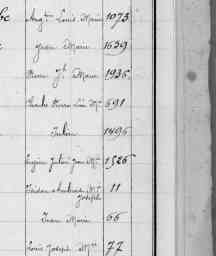 bc Aug.te Louis Marie 1073
Jean Marie 1639
Pierre J.h Marie 1936
Charles Pierre Léon M.ie 691
Julien 1496
Eugène Julien Jean M.ie 1526
M.ie 11
Joseph
Jean Marie 66
Louis Joseph M.ie 77